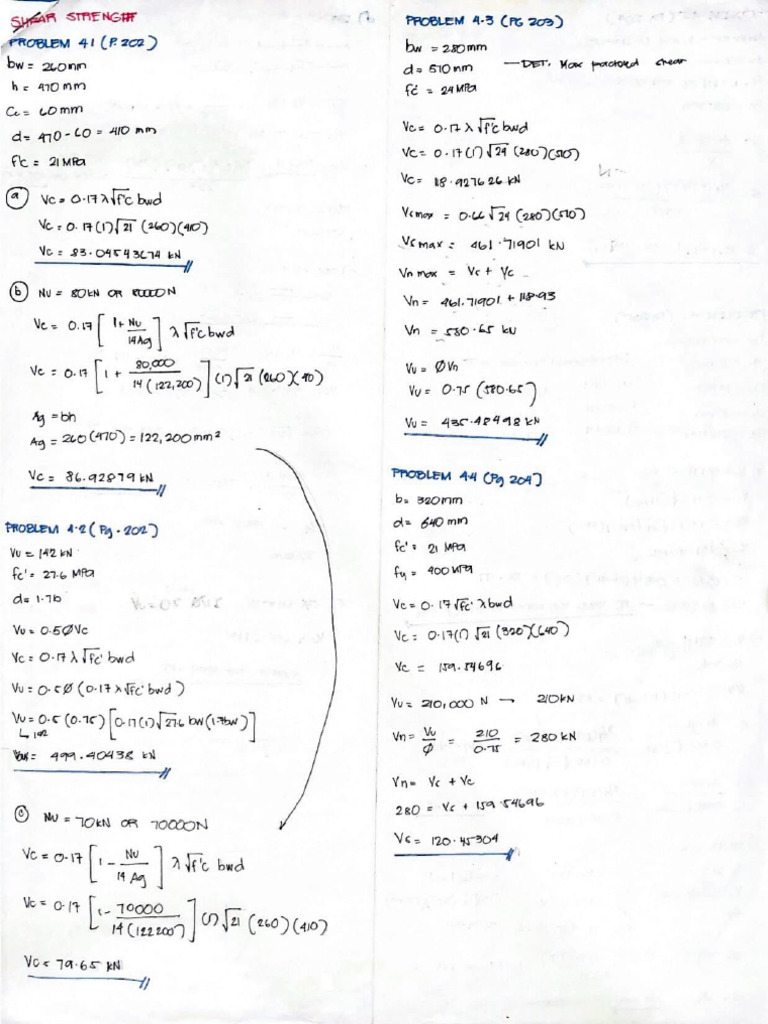 SHEAR STRENGHT
PROBLEM 4.1 (P. 202)
bw = 260mm
h = 470 mm
Cc = 60 mm
d = 470 - 60 = 410 mm
f'c = 21 MPa
(a) Vc = 0.17 λ √f'c bwd
Vc = 0.17 (1) √21 (260)(410)
Vc = 83.04543674 kN
(b) Nu = 80kN OR 80000N
Vc = 0.17 [1 + Nu/14Ag] λ √f'c bwd
Vc = 0.17 [1 + 80,000/14(122,200)] (1) √21 (260)(410)
Ag = bh
Ag = 260(470) = 122,200 mm²
Vc = 86.92879 kN
PROBLEM 4.2 (Pg. 202)
Vu = 142 kN
fc' = 27.6 MPa
d = 1.7b
Vu = 0.5ØVc
Vc = 0.17 λ √fc' bwd
Vu = 0.5Ø (0.17 λ √fc' bwd)
Vu = 0.5 (0.75) [0.17(1) √27.6 bw (1.7bw)]
↳ 142
= 499.40438 kN
(c) Nu = 70kN OR 70000N
Vc = 0.17 [1 - Nu/14 Ag] λ √f'c bwd
Vc = 0.17 [1 - 70000/14(122200)] (1) √21 (260)(410)
Vc = 79.65 kN
PROBLEM 4.3 (PG 203)
bw = 280mm
d = 510 mm — DET. Max factored shear
fc' = 24 MPa
Vc = 0.17 λ √f'c bwd
Vc = 0.17 (1) √24 (280)(510)
Vc = 118.927626 kN
Vs max = 0.66 √24 (280)(510)
Vs max = 461.71901 kN
Vn max = Vs + Vc
Vn = 461.71901 + 118.93
Vn = 580.65 kN
Vu = ØVn
Vu = 0.75 (580.65)
Vu = 435.48498 kN
PROBLEM 4.4 (Pg 204)
b = 320mm
d = 640 mm
fc' = 21 MPa
fy = 400 MPa
Vc = 0.17 √fc' λ bwd
Vc = 0.17(1) √21 (320)(640)
Vc = 159.54696
Vu = 210,000 N → 210 kN
Vn = Vu/Ø = 210/0.75 = 280 kN
Vn = Vs + Vc
280 = Vs + 159.54696
Vs = 120.45304